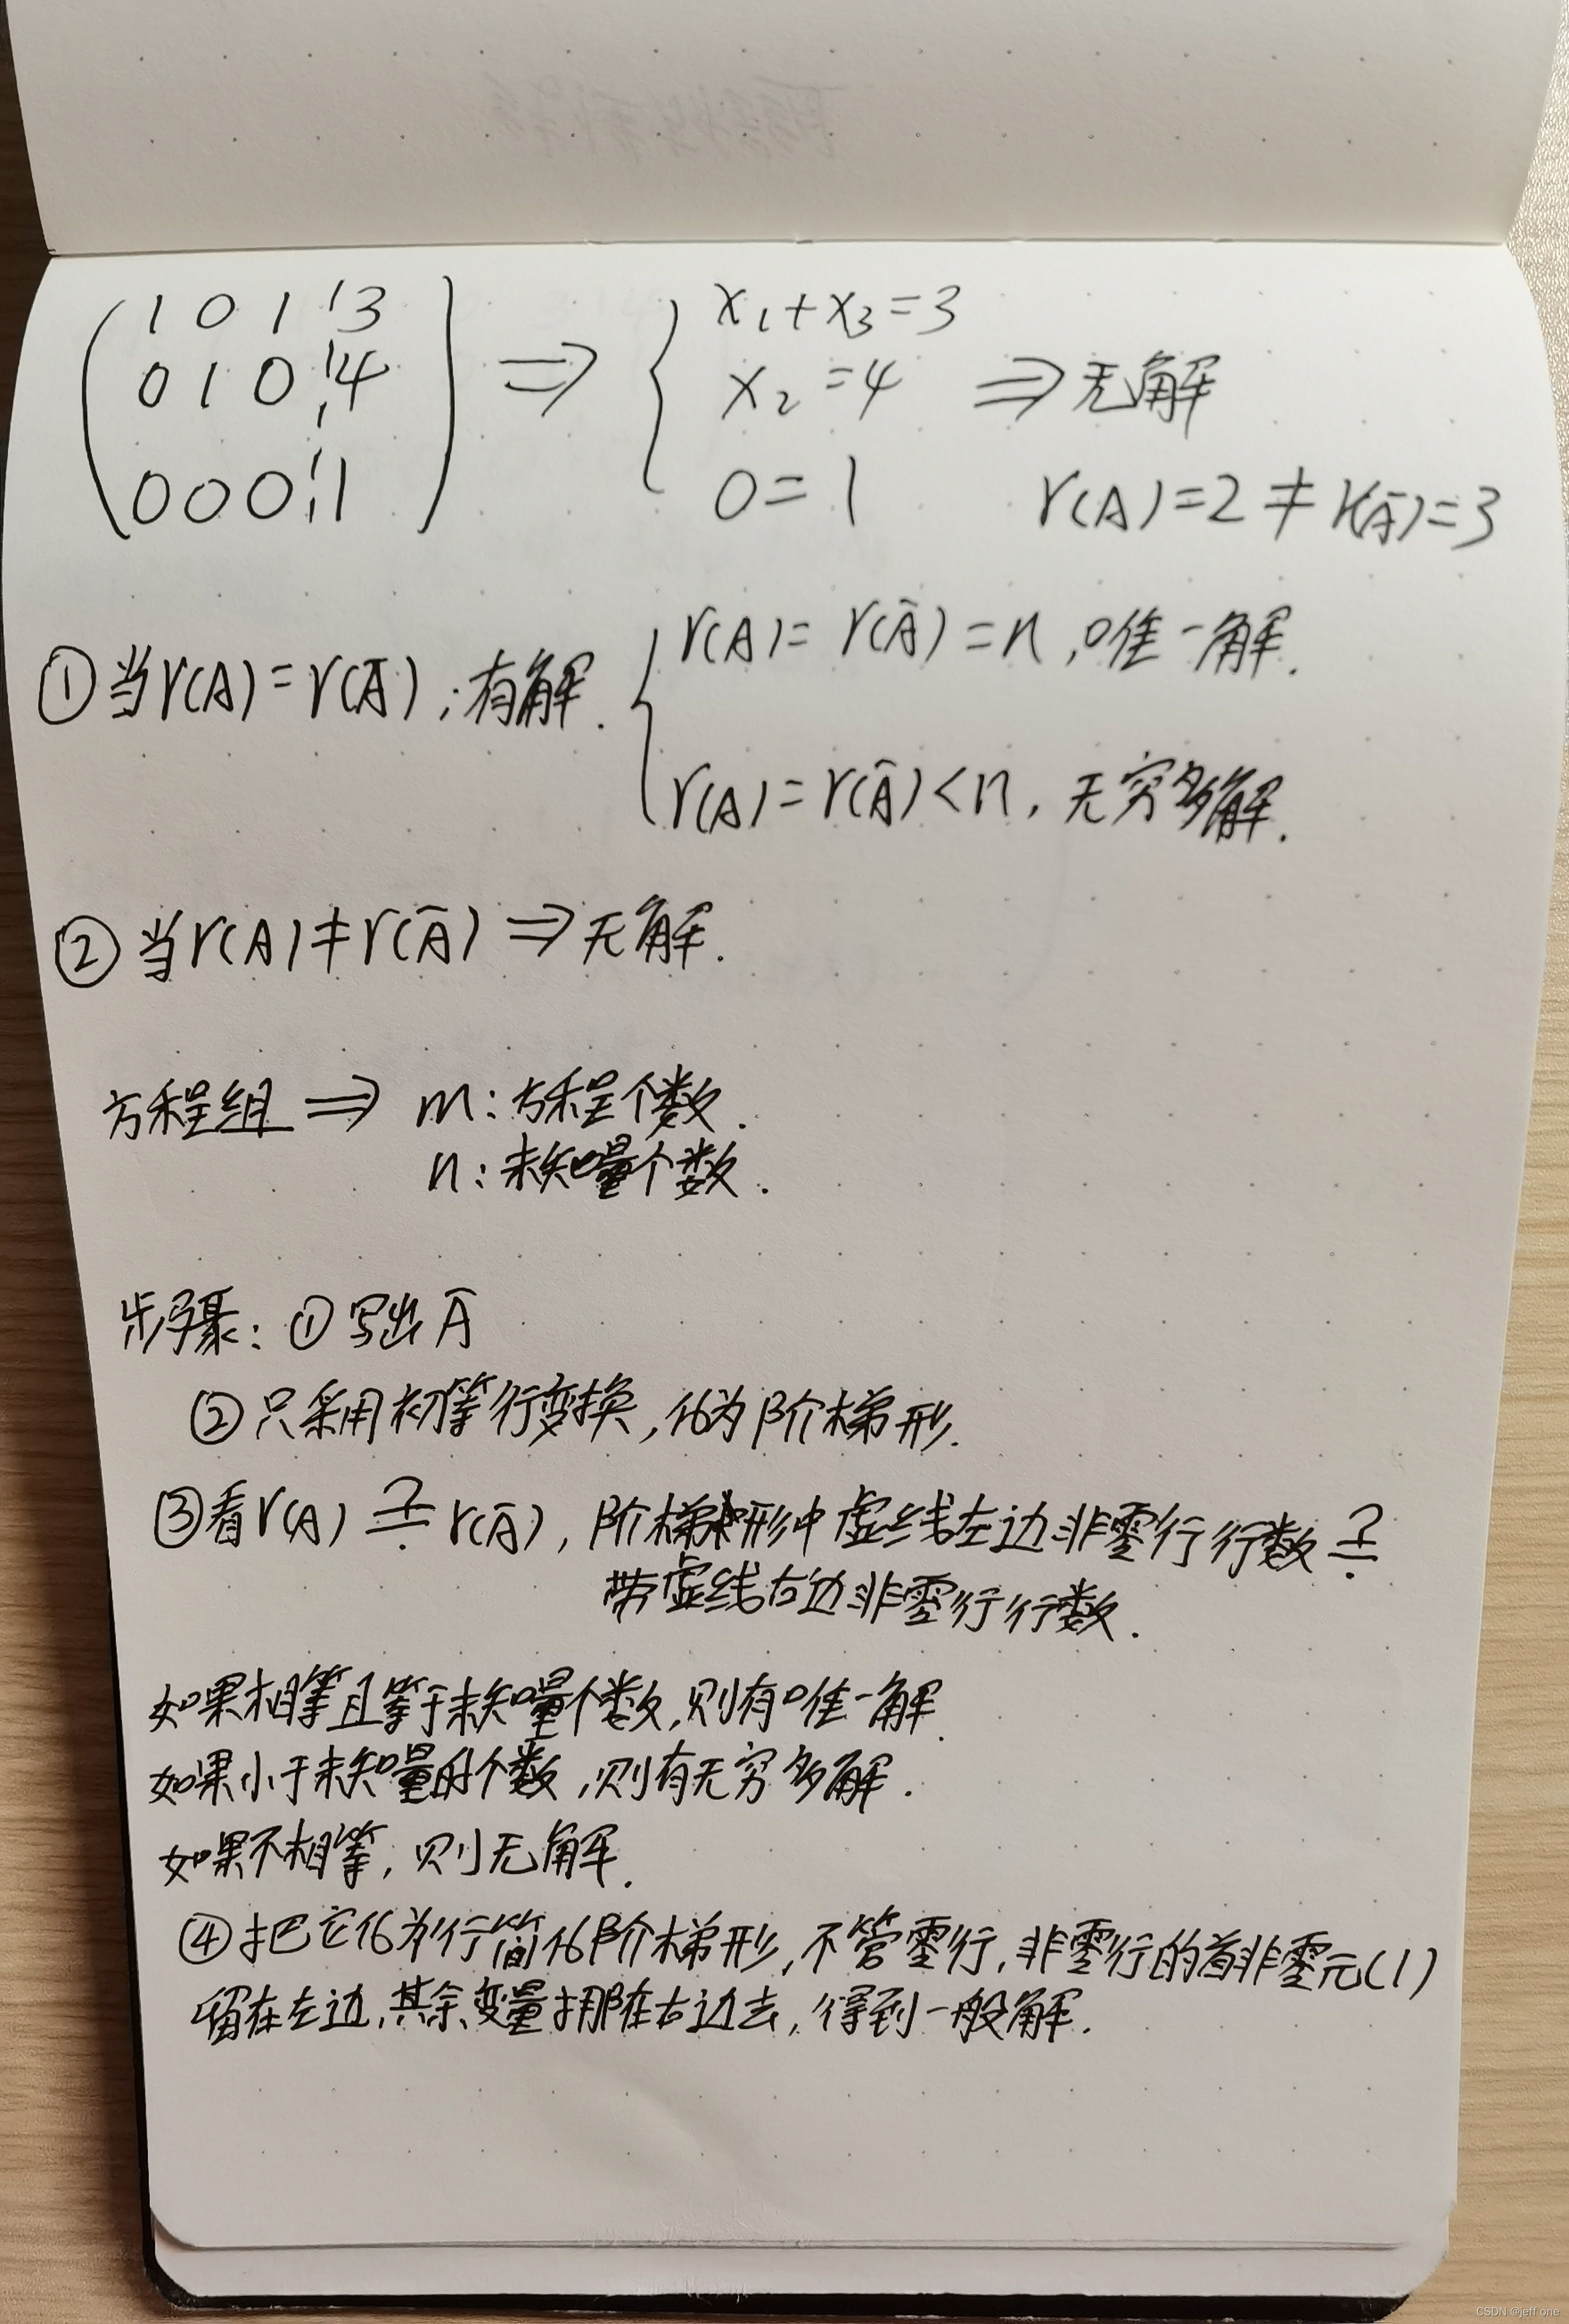 1 0 1 ¦ 3
0 1 0 ¦ 4
0 0 0 ¦ 1
⇒
x₁+x₃=3
x₂=4
0=1
⇒无解
r(A)=2≠r(Ā)=3
①当r(A)=r(Ā),有解.
r(A)=r(Ā)=n,唯一解.
r(A)=r(Ā)<n,无穷多解.
②当r(A)≠r(Ā)⇒无解.
方程组⇒ m:方程个数.
n:未知量个数.
步骤:①写出Ā
②只采用初等行变换,化为阶梯形.
③看r(A)≟r(Ā),阶梯形中虚线左边非零行行数≟
带虚线右边非零行行数.
如果相等且等于未知量个数,则有唯一解.
如果小于未知量的个数,则有无穷多解.
如果不相等,则无解.
④把它化为行简化阶梯形,不管零行,非零行的首非零元(1)
留在左边,其余变量挪在右边去,得到一般解.
CSDN @jeff one